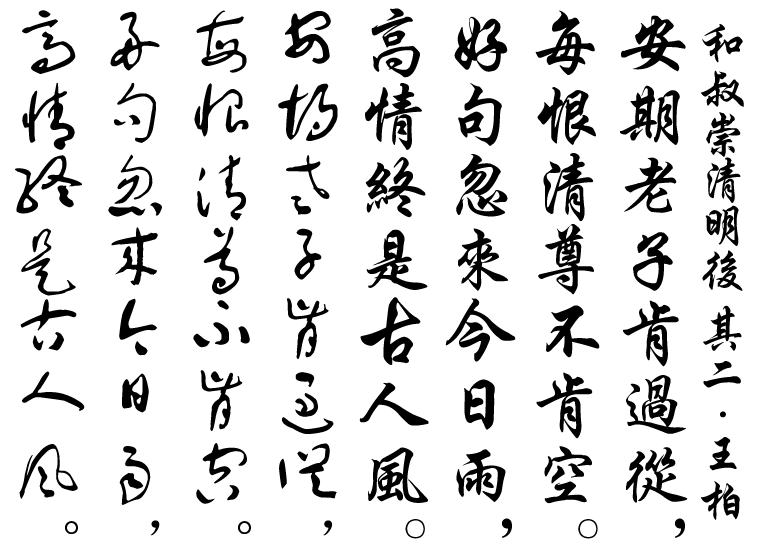 和叔崇清明後 其二·王柏
安期老子肯過從，
每恨清尊不肯空。
好句忽來今日雨，
高情終是古人風。
安期老子肯過從，
每恨清尊不肯空。
好句忽來今日雨，
高情終是古人風。